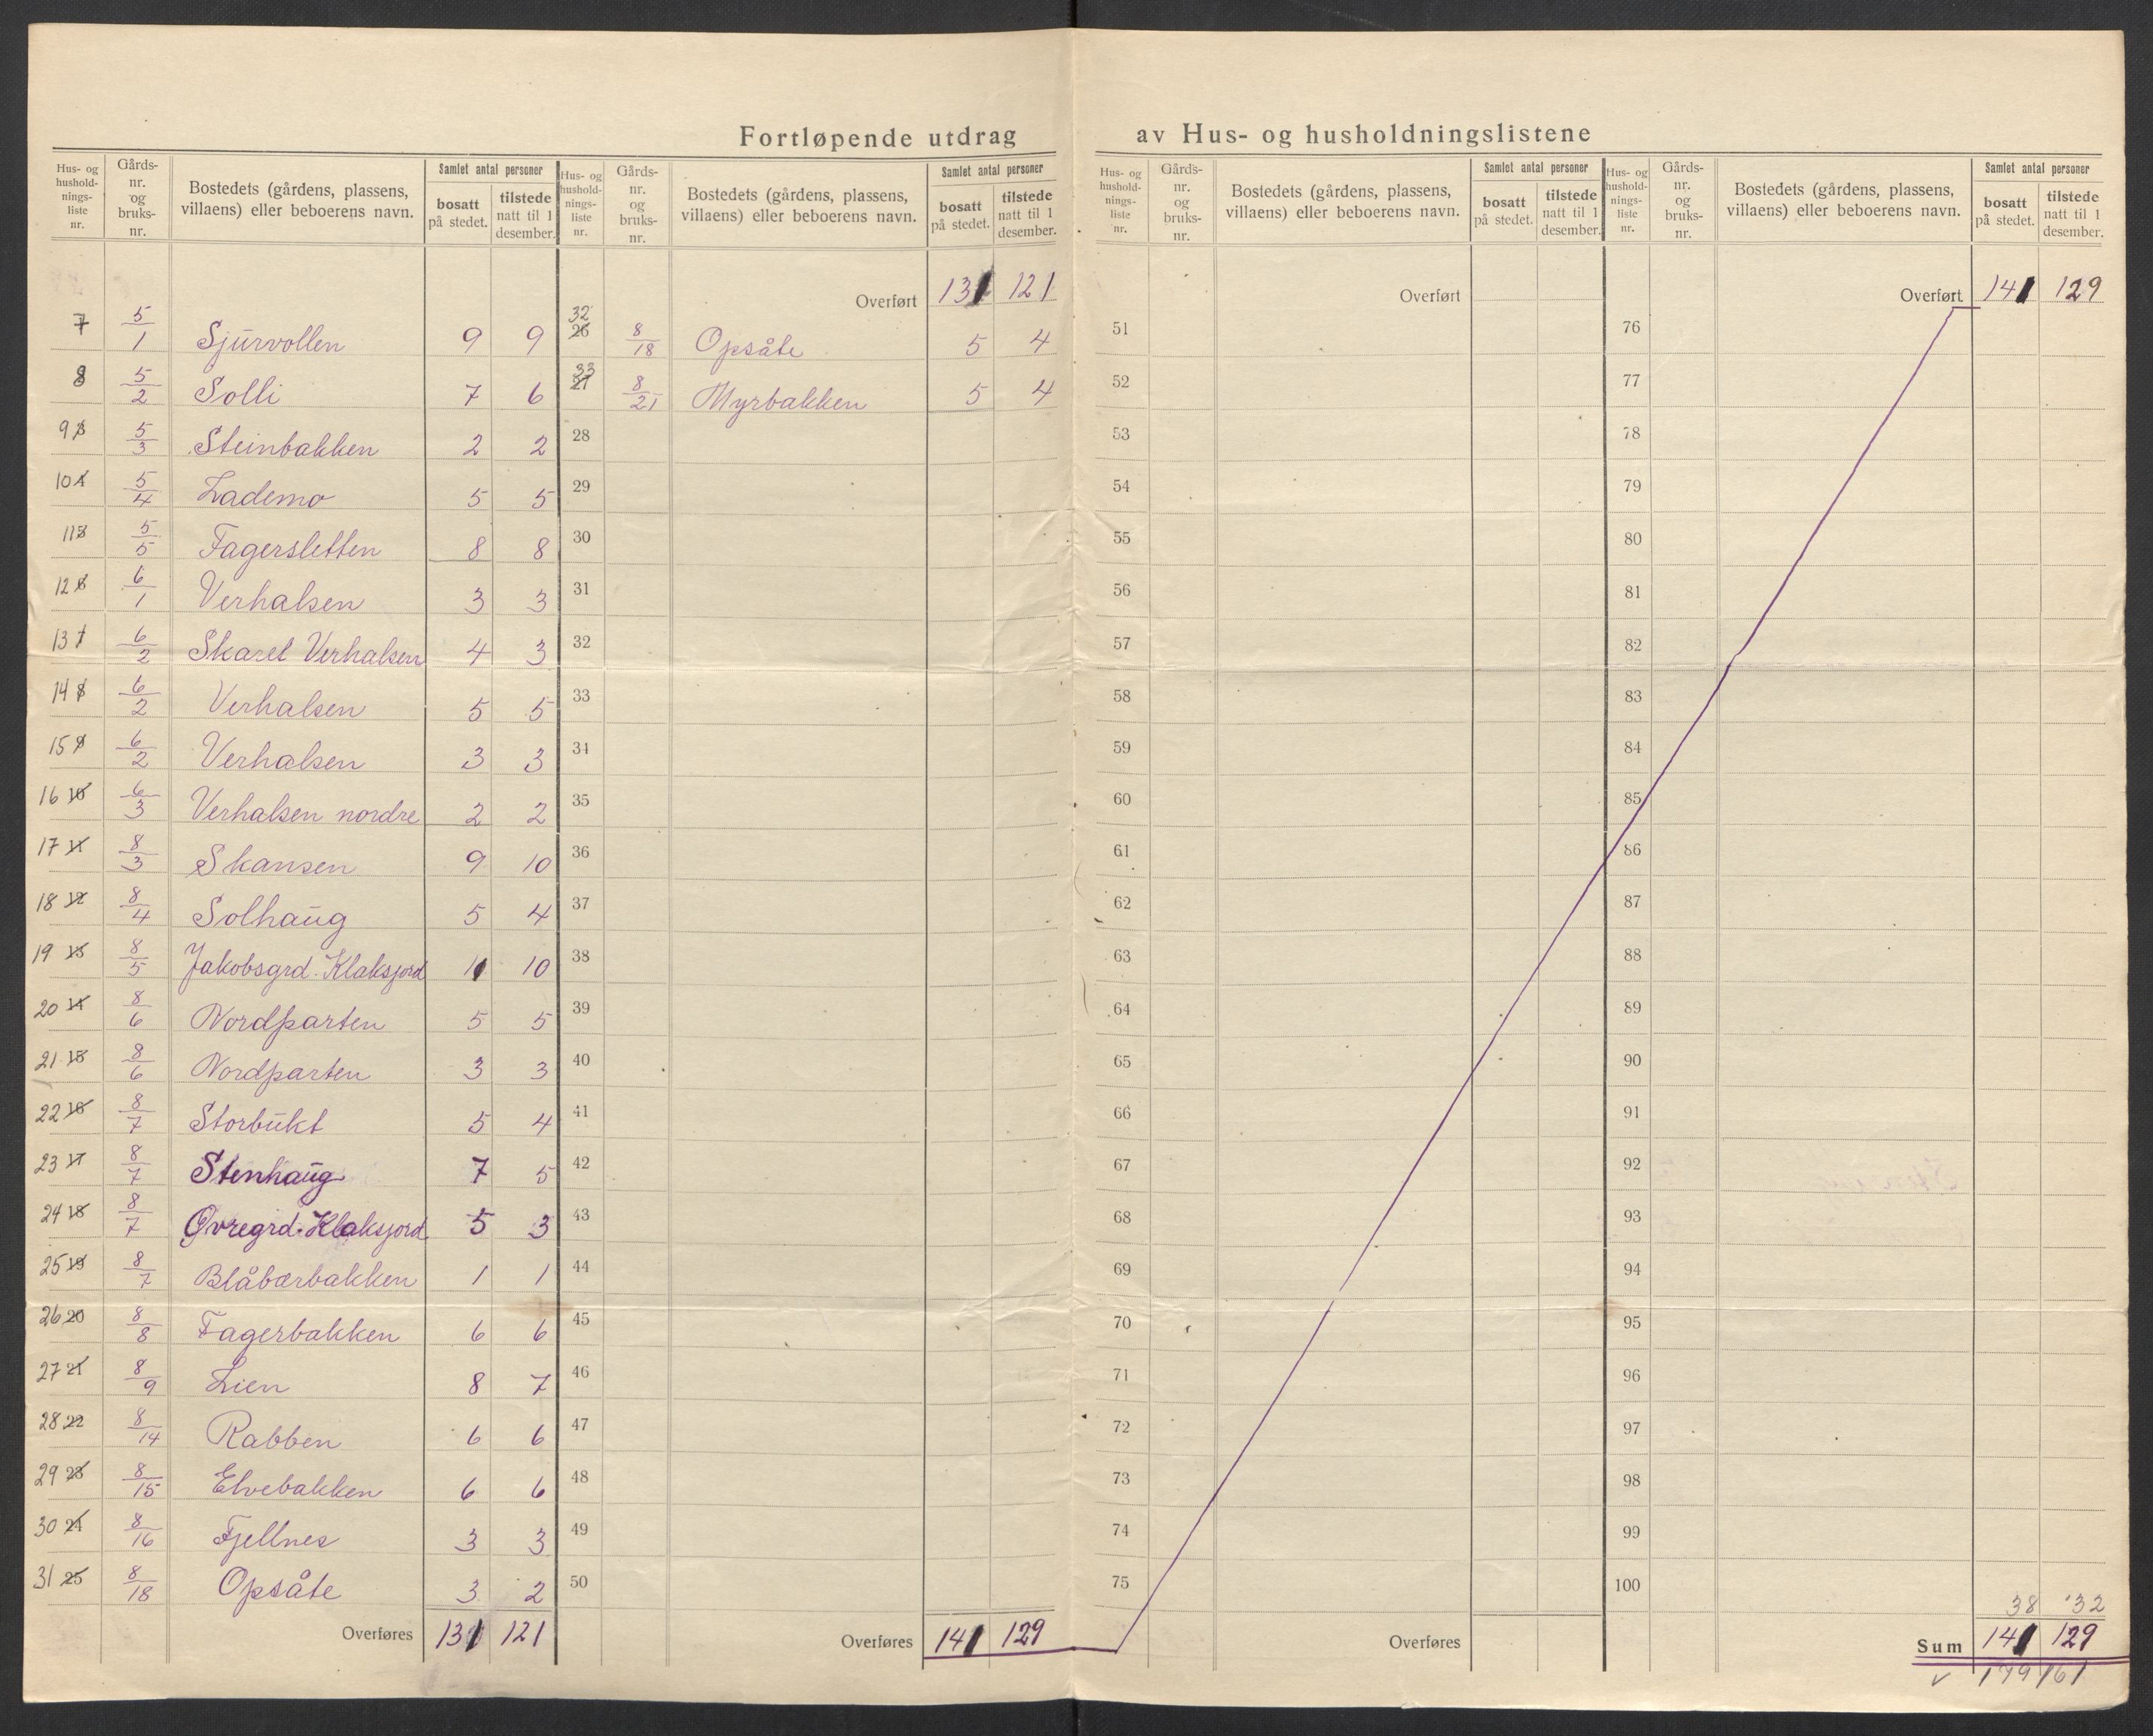 Fortløpende utdrag av Hus- og husholdningslistene
Hus- og hushold-nings-liste nr. Gårds-nr. og bruks-nr. Bostedets (gårdens, plassens, villaens) eller beboerens navn. Samlet antal personer bosatt på stedet. tilstede natt til 1 desember.
7 5/1 Sjurvollen 9 9
8 5/2 Solli 7 6
9 3 5/3 Steinbakken 2 2
10 4 5/4 Lademo 5 5
11 5 5/5 Fagersletten 8 8
12 6 6/1 Verhalsen 3 3
13 7 6/2 Skaret Verhalsen 4 3
14 8 6/2 Verhalsen 5 5
15 9 6/2 Verhalsen 3 3
16 10 6/3 Verhalsen nordre 2 2
17 11 8/3 Skansen 9 10
18 12 8/4 Solhaug 5 4
19 13 8/5 Jakobsgrd. Klaksjord 11 10
20 14 8/6 Nordparten 5 5
21 15 8/6 Nordparten 3 3
22 16 8/7 Storbukt 5 4
23 17 8/7 Stenhaug 7 5
24 18 8/7 Øvregrd. Klaksjord 5 3
25 19 8/7 Blåbærbakken 1 1
26 20 8/8 Fagerbakken 6 6
27 21 8/9 Lien 8 7
28 22 8/14 Rabben 6 6
29 23 8/15 Elvebakken 6 6
30 24 8/16 Fjellnes 3 3
31 25 8/18 Opsåte 3 2
Overføres 131 121
Hus- og hushold-nings-liste nr. Gårds-nr. og bruks-nr. Bostedets (gårdens, plassens, villaens) eller beboerens navn. Samlet antal personer bosatt på stedet. tilstede natt til 1 desember.
Overført 131 121
32 26 8/18 Opsåte 5 4
33 27 8/21 Myrbakken 5 4
28
29
30
31
32
33
34
35
36
37
38
39
40
41
42
43
44
45
46
47
48
49
50
Overføres 141 129
Hus- og hushold-nings-liste nr. Gårds-nr. og bruks-nr. Bostedets (gårdens, plassens, villaens) eller beboerens navn. Samlet antal personer bosatt på stedet. tilstede natt til 1 desember.
Overført
51
52
53
54
55
56
57
58
59
60
61
62
63
64
65
66
67
68
69
70
71
72
73
74
75
Overføres
Hus- og hushold-nings-liste nr. Gårds-nr. og bruks-nr. Bostedets (gårdens, plassens, villaens) eller beboerens navn. Samlet antal personer bosatt på stedet. tilstede natt til 1 desember.
Overført 141 129
76
77
78
79
80
81
82
83
84
85
86
87
88
89
90
91
92
93
94
95
96
97
98
99
100
38 32
Sum 141 129
179 161